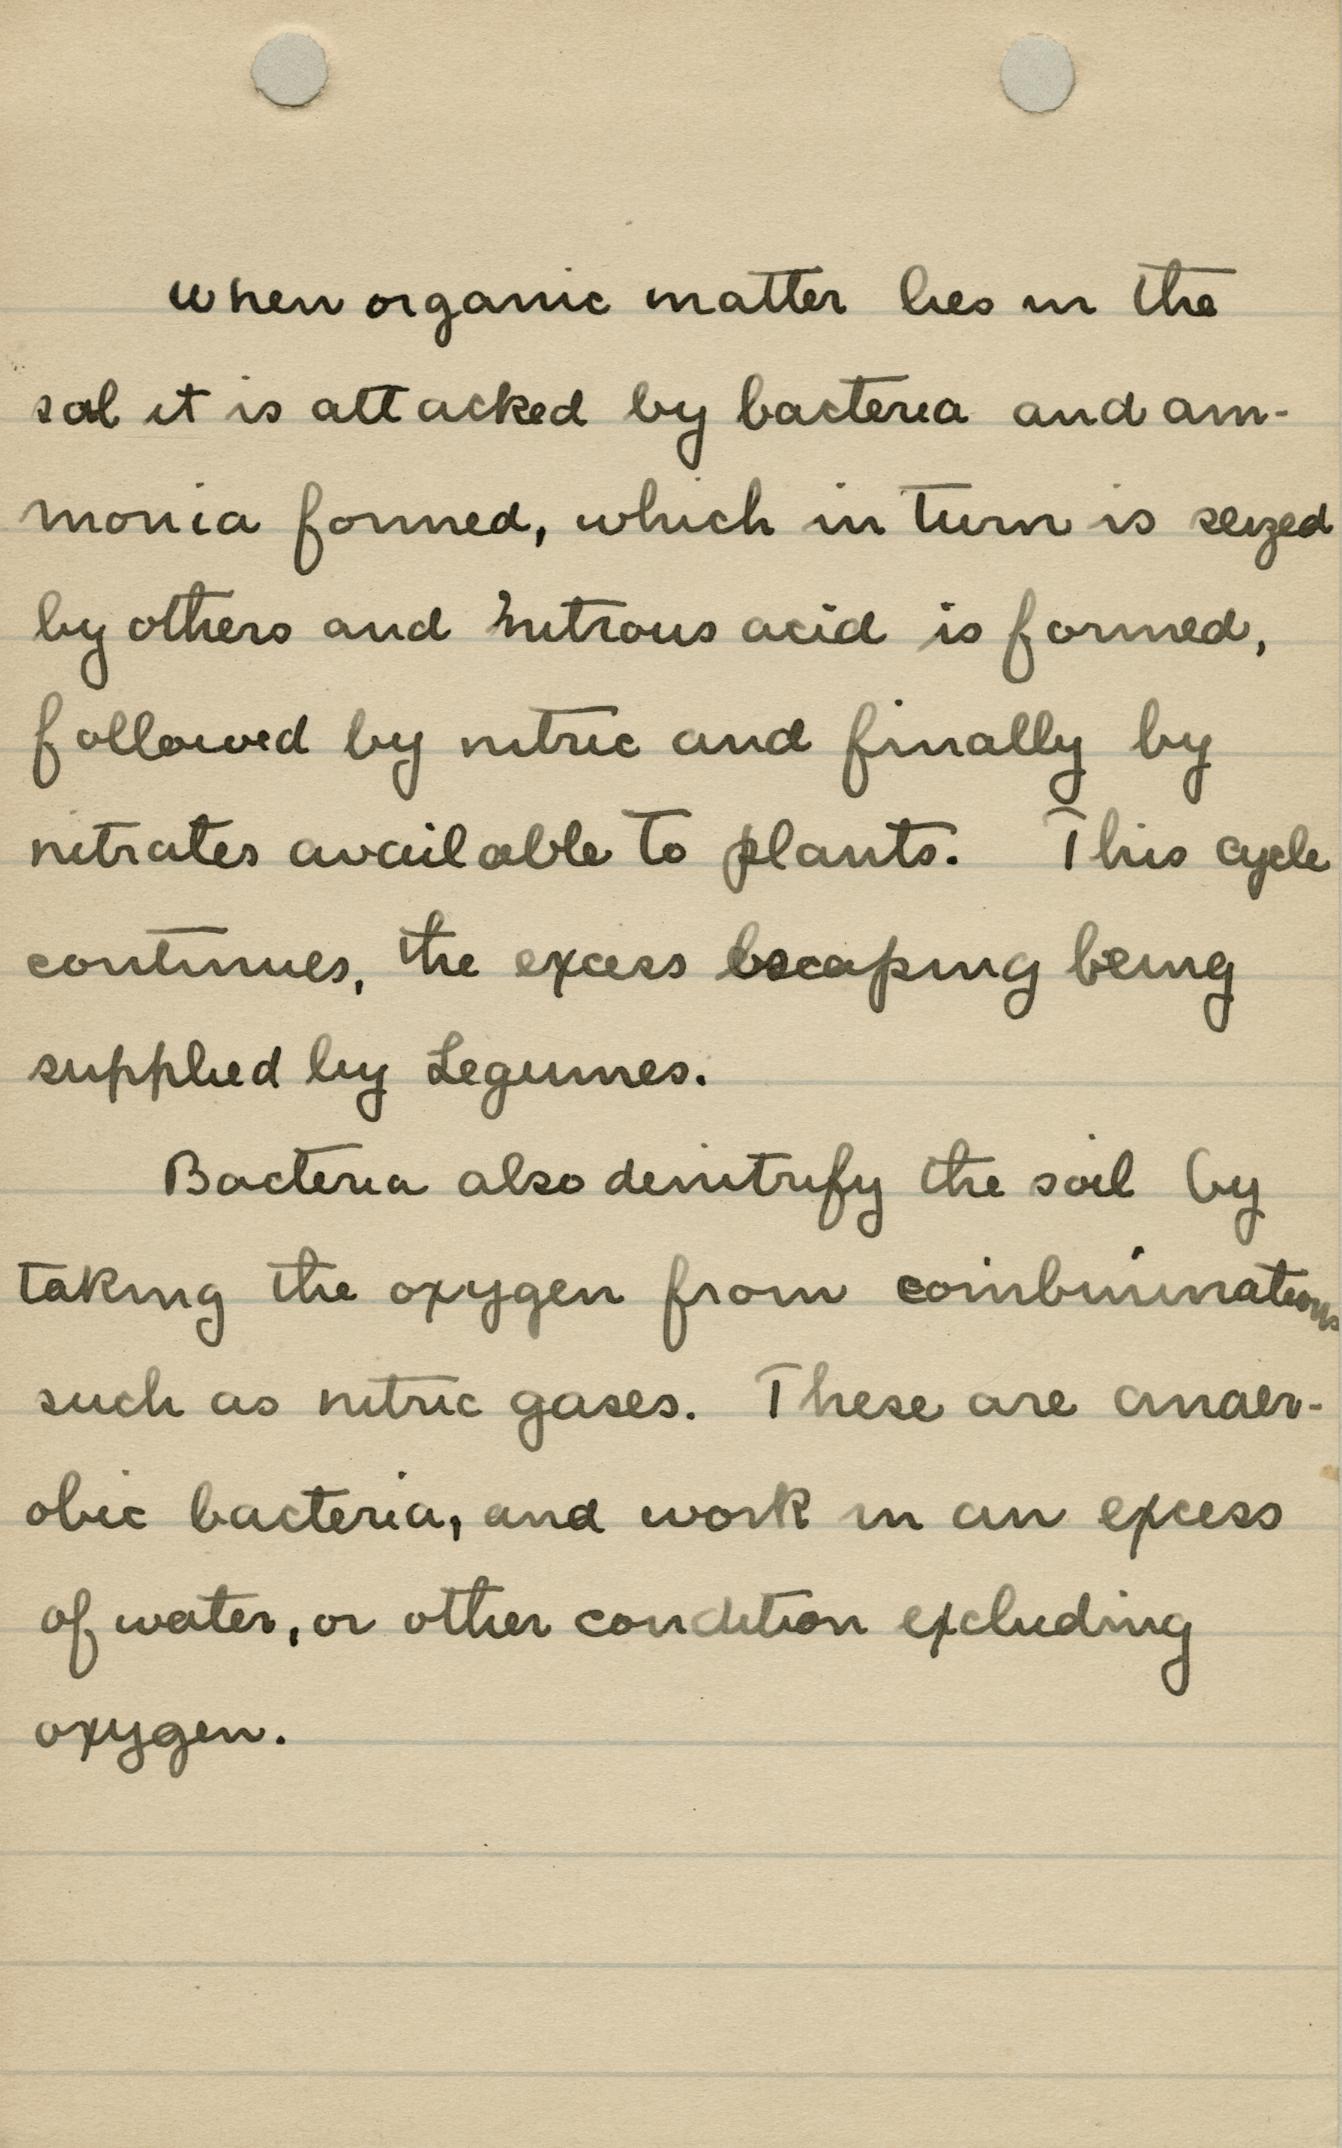 When organic matter lies in the
soil it is attacked by bacteria and am-
monia formed, which in turn is seized
by others and nitrous acid is formed,
followed by nitric and finally by
nitrates available to plants. This cycle
continues, the excess escaping being
supplied by Legumes.
Bacteria also denitrify the soil by
taking the oxygen from combinations
such as nitric gases. These are anaer-
obic bacteria, and work in an excess
of water, or other condition excluding
oxygen.